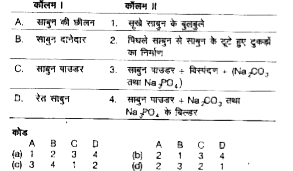 कॉलम I कॉलम II
A. साबुन की छीलन 1. सूखे साबुन के बुलबुले
B. साबुन दानेदार 2. पिघले साबुन से साबुन के टूटे हुए टुकड़ों का निर्माण
C. साबुन पाउडर 3. साबुन पाउडर + विस्पंदन + (Na₂CO₃ तथा Na₃PO₄)
D. रेत साबुन 4. साबुन पाउडर + Na₂CO₃ तथा Na₃PO₄ के बिल्डर
कोड
A B C D A B C D
(a) 1 2 3 4 (b) 2 1 3 4
(c) 3 4 1 2 (d) 2 3 2 1